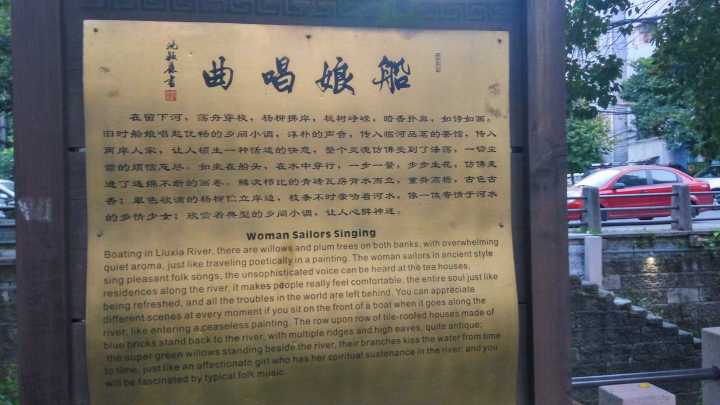 船娘唱曲
在留下河，荡舟穿梭，杨柳拂岸，桃树峥嵘，暗香扑鼻，如诗如画，
旧时船娘唱起优畅的乡间小调，淳朴的声音，传入临河品茗的茶馆，传入
两岸人家，让人顿生一种恬适的快意，整个灵魂仿佛受到了涤荡，一切尘
嚣的烦恼忘尽。如坐在船头，在水中穿行，一步一景，步步生花，仿佛走
进了连绵不断的画卷。鳞次栉比的青砖瓦房背水而立，重脊高檐，古色古
香；翠色欲滴的杨柳伫立岸边，枝条不时亲吻着河水，像一位寄情于河水
的多情少女；欣赏着典型的乡间小调，让人心醉神迷。
Woman Sailors Singing
Boating in Liuxia River, there are willows and plum trees on both banks, with overwhelming
quiet aroma, just like traveling poetically in a painting. The woman sailors in ancient style
sing pleasant folk songs, the unsophisticated voice can be heard at the tea houses,
residences along the river, it makes people really feel comfortable, the entire soul just like
being refreshed, and all the troubles in the world are left behind. You can appreciate
different scenes at every moment if you sit on the front of a boat when it goes along the
river, like entering a ceaseless painting. The row upon row of tile-roofed houses made of
blue bricks stand back to the river, with multiple ridges and high eaves, quite antique;
the super green willows standing beside the river, their branches kiss the water from time
to time, just like an affectionate girl who has her spiritual sustenance in the river; and you
will be fascinated by typical folk music.